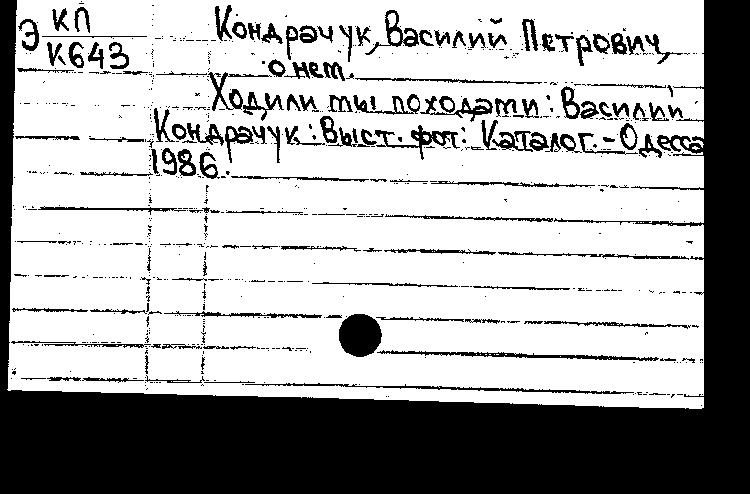 Э КП
К643
Кондрачук, Василий Петрович,
о нем.
Ходили ты походати: Василий
Кондрачук: Выст. фот: Каталог.-Одесса
1986.